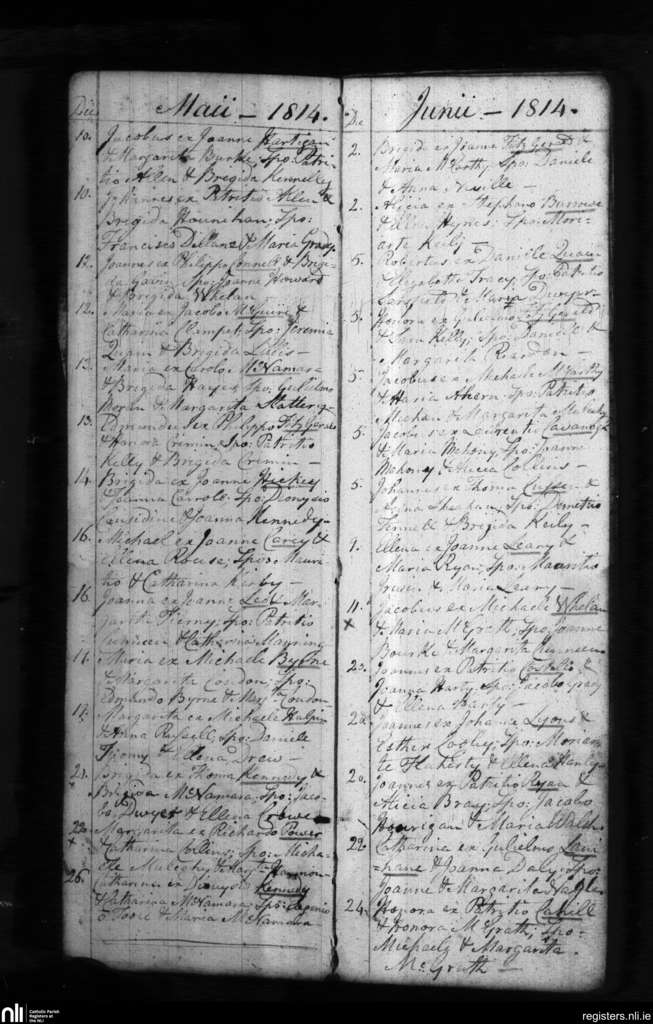 Die Maii - 1814.
10. Jacobus ex Joanne Hartigan
& Margarita Burke, Spo: Patri-
tio Allen & Brigida Kennelly
10. Johannes ex Patritio Allen &
Brigida Hounehan; Spo:
Francisco Dillane & Maria Grady
12. Joannes ex Philippo Connell & Brigi-
da Spo: Joanne Howard
& Brigida Whelan
12. Maria ex Jacobo McGuire &
Catharina Spo: Jeremia
Quann & Brigida
13. Maria ex Carolo McNamara
& Brigida Hayes, Spo: Gulielmo
& Margarita Slattery
13. Edmundus ex Philippo Fitz Gerald
& Honora Crimin Spo: Patritio
Kelly & Brigida Crimin -
14. Brigida ex Joanne Hickey
& Joanna Carroll: Spo: Dionysio
Considine & Joanna Kennedy -
16. Michael ex Joanne Carey &
Ellena Rouse, Spo: Mauri-
tio & Catharina Kirby -
16. Joanna ex Joanne Leo & Mar-
garita Tierny, Spo: Patritio
& Catharina
Maria ex Michaele Byrne
& Margarita Condon; Spo:
Edmundo Byrne & Marg.ta Condon
Margarita ex Michaele Halpin
& Anna Russell; Spo: Daniele
& Ellena Drew -
21. Brigida ex Thoma Kennedy &
Brigida McNamara, Spo: Jaco-
bo Dwyer & Ellena Crowe -
22. Margarita ex Richardo Power
x & Catharina Collins; Spo: Micha-
ele & Marg.ta Hannon
26. Catharina ex Dionysio Kennedy
& Catharina McNamara; Spo: Eugenio
O Toole & Maria McNamara
Die Junii - 1814.
2. Brigida ex Joanne Fitz Gerald &
Maria McCarthy, Spo: Daniele
& Anna Neville -
2. Alicia ex Stephano Burrowes
& Ellena Hynes; Spo: Mori-
arte Keily -
5. Robertus ex Daniele Quain
& Elizabetha Tracy, Spo: Patritio
& Maria
5. Honora ex Gulielmo Fitz Gerald
& Kelly; Spo: Daniele &
Margarita Reardon -
5. Jacobus ex Michaele McCarthy
& Maria Ahern, Spo: Patritio
Meehan & Margarita
5. Jacobus ex Laurentio Cavanagh
& Maria Mahony, Spo: Joanne
Mahony & Alicia Collins -
5. Johannes ex Thoma Cussen &
Sheehan, Spo: Demetrio
& Brigida Keily -
9. Ellena ex Joanne Leary &
Maria Ryan; Spo: Mauritio
& Maria Leary -
11. Jacobus ex Michaele Whelan
x & Maria McGrath; Spo: Joanne
Bourke & Margarita
20. Joannes ex Patritio Costello &
Joanna Harty, Spo: Jacobo Grady
& Ellena Harty -
20. Joannes ex Johanne Lyons &
Esther Cooley; Spo: Moriar-
te Flaherty & Ellena Hanly
20. Joannes ex Patritio Ryan &
Alicia Bray; Spo: Jacobo
Hourigan & Maria Walsh
22. Catharina ex Gulielmo Lani-
hane & Joanna Daly; Spo:
Joanne & Margarita Nagle
24. Honora ex Patritio Cahill
& Honora McGrath; Spo:
Michaele & Margarita
McGrath -
nli
Catholic Parish
Registers at
the NLI
registers.nli.ie